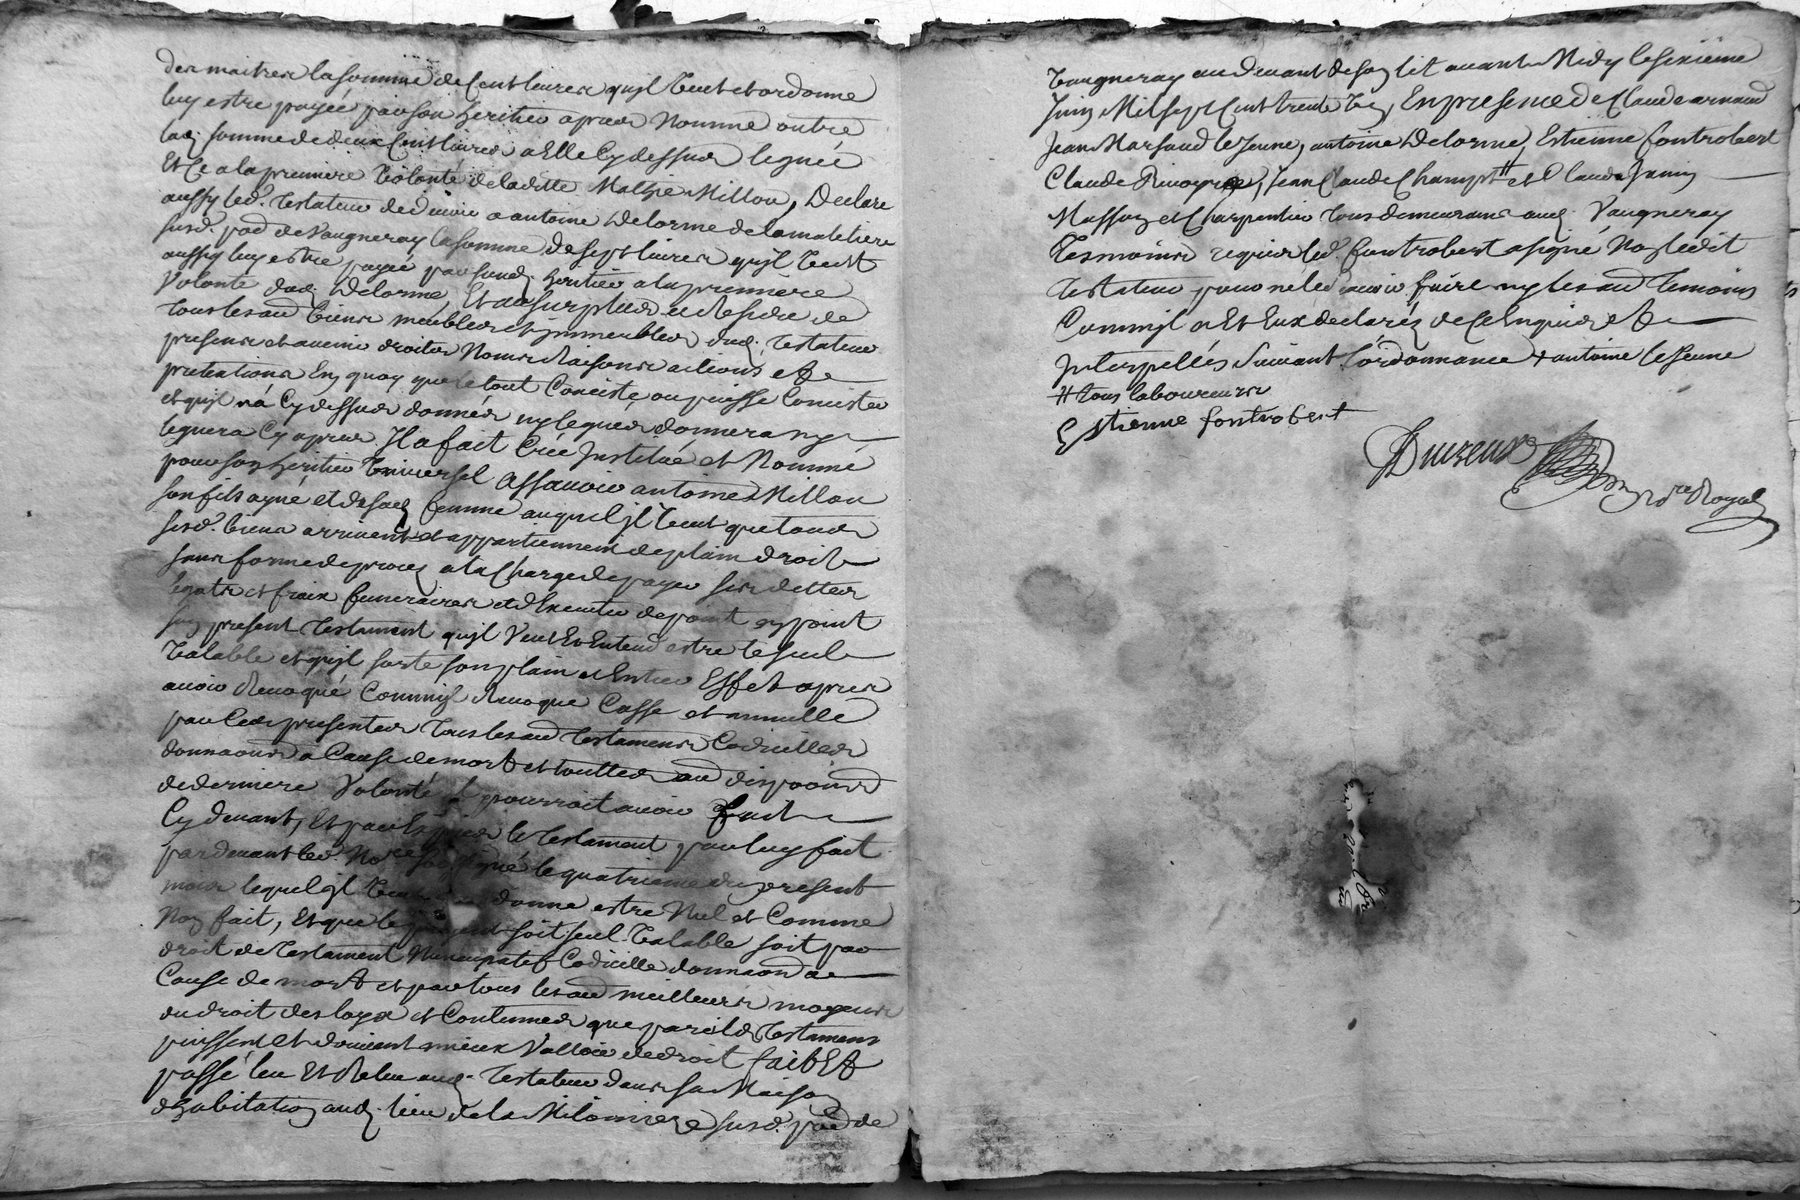 des maitres la somme de Cent livres qu'jl veut et ordonne
luy estre payée par son heritier apres Nommé outre
lad. somme de deux Cent livres a Elle Cy dessus leguée
Et Ce a la premiere Volonté de laditte Mathie Millon, Declare
aussy led. Testateur devoir a antoine Delorme de la maletiere
susd. par de Vaugneray la somme de sept livres qu'jl veut
aussy luy estre payée par sond. heritier a la premiere
Volonté dud. Delorme, Et au surplus et Residu de
tous les aud biens meubles et jmmeubles dud. Testateur
presens et avenir droits Noms Raisons actions et
pretentions En quoy que le tout Conciste ou puisse Concister
et qu'jl n'a Cy dessus donnés ny legués donnera ny
leguera Cy apres. Jl a fait Créé Jnstitué et Nommé
pour son heritier Vniversel assavoir antoine Millon
son fils ayné et de sad. femme auquel jl veut que tous
sesd. biens arrivent et appartiennent de plain droit
sans forme de procez a la Charge de payer ses dettes
legats et fraix funeraires et d'Executer de point en point
son present Testament qu'jl Veut Et Entend estre le seul
valable et qu'jl sorte son plain et Entier Effet apres
avoir Revoqué Comm'jl Revoque Casse et annulle
par Ces presentes tous les aud Testamens Codicilles
donnaons a Cause de mort et touttes aud dispoons
de derniere Volonté pourroit avoir fait
Cy devant, Et par Exprès le Testament par luy fait
pardevant led. Nore soussigné le quatrieme du present
mois lequel jl veut donne estre Nul et Comme
Non fait, Et que le present soit seul Valable soit par
droit de Testament Nuncupatif Codicille donnaon a
Cause de mort et par tous les aud meilleurs moyens
du droit des loyx et Coutumes que pareils Testamens
puissent et doivent mieux Valloir de droit fait Et
passé leu Et Releu aud. Testateur dans sa Maison
d'habitation aud. lieu de la Milonniere susd. par de
Vaugneray au devant de son lit avant Midy le sixieme
Juin Mil sept Cent trente En presence de Claude arnaud
Jean Marsaud le Jeune, antoine Delorme, Estienne fontrobert
Claude, Jean Claude Champt # et Claude Janin
Masson et Charpentier tous demeurans aud. Vaugneray
Tesmoins requis led. fontrobert a signé Non ledit
Testateur pour ne le savoir faire ny les aud Temoins
Comm'jl a Et Eux declarés de Ce Enquis et
Jnterpellés Suivant l'ordonnance + antoine le Jeune
# tous laboureurs
Estienne fontrobert
Nre Royal